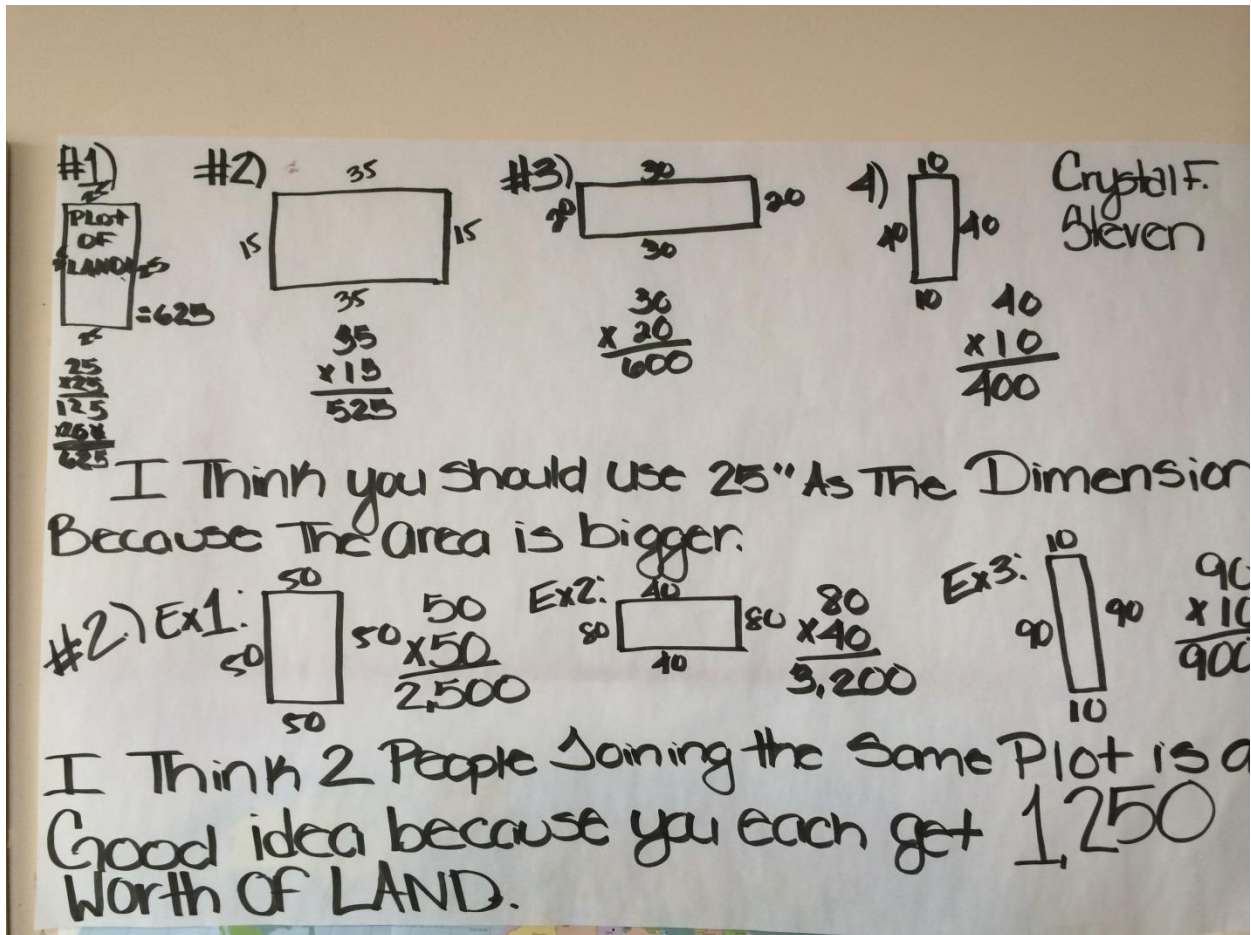 #1)
25
PLOT
OF
LAND
25
=625
25
25
x25
125
625
#2)
35
15
15
35
35
x15
525
#3)
30
20
20
30
30
x 20
600
4)
10
40
40
10
40
x10
400
Crystal F.
Steven
I Think you should use 25" As The Dimension
Because The area is bigger.
#2.) Ex1:
50
50
50
50
50
x50
2,500
Ex2:
40
80
80
40
80
x40
3,200
Ex3:
10
90
90
10
90
x10
900
I Think 2 People Joining the Same Plot is a
Good idea because you each get 1,250
Worth OF LAND.